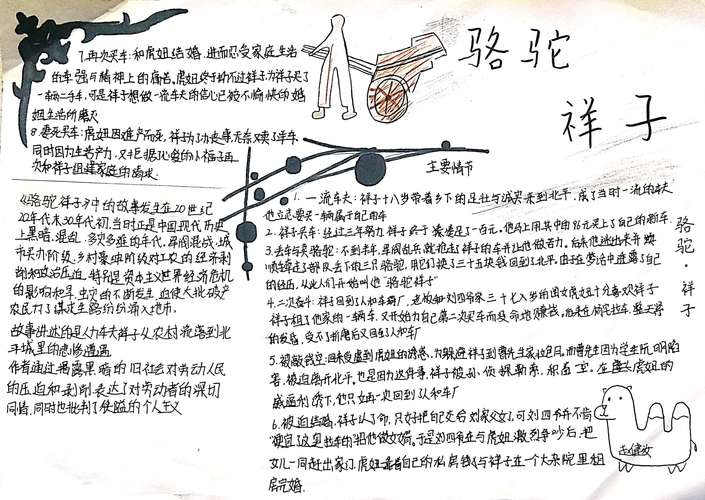 骆驼
祥子
7.再次买车:和虎妞结婚,进而忍受家庭生活
的牵强与精神上的痛苦。虎妞终于拗不过祥子为祥子买了
一辆二手车,可是祥子想做一流车夫的信心已被不愉快的婚
姻生活所磨灭
8.要死买车:虎妞因难产而死,祥子为办丧事,无奈又卖了车
同时因为生养产力,又拒绝了心爱的小福子再
次和祥子组建家庭的请求。
《骆驼祥子》中的故事发生在20世纪
20年代末30年代初,当时正是中国现代历史
上黑暗、混乱、多灾多难的年代。军阀混战,城
市买办阶级、乡村豪绅阶级对工农的经济剥
削和政治压迫,特别是资本主义世界经济危机
的影响和旱、虫灾的不断发生,迫使大批破产
农民为了谋生路纷纷涌入城市。
故事讲述的是人力车夫祥子从农村流落到北
平城里的悲惨遭遇
作者通过揭露黑暗的旧社会对劳动人民
的压迫和剥削,表达了对劳动者的深切
同情,同时也批判了狭隘的个人主义
主要情节
1.一流车夫:祥子十八岁带着乡下的足壮与诚实来到北平,成了当时一流的车夫
他立志要买一辆属于自己的车
2.祥子买车:经过三年努力,祥子终于凑足了一百元。他马上用其中的96元买上了自己的新车
3.丢车与卖骆驼:不到半年,军阀乱兵就抢走了祥子的车并让他做苦力。后来他逃出来并
顺手牵走了部队丢下的三只骆驼,用它们换了三十五块钱回到了北平。由于在梦话中道露了自己
的经历,从此人们开始叫他“骆驼祥子”
4.二次奋斗:祥子回到了人和车厂,老板和刘四爷家三十七八岁的闺女虎妞十分喜欢祥子
祥子租了他家的一辆车,又开始为自己第二次买车而玩命地赚钱。后来在杨先生拉车,整天
的敖磨,受不了折磨后又回了人和车厂
5.被敲诈空:回来受虐到虎妞的诱惑,为躲避祥子到曹先生家拉包月。而曹先生因为学生阮明陷
害,被迫离开北平。也是因为这件事,祥子被孙侦探勒索,积蓄空。在虎妞的
威逼利诱下,他只好再一次回到了人和车厂
6.被迫结婚:祥子认了命,只好把自己交给刘家父女,可刘四爷并不愿
把女儿一同赶出家门,虎妞靠着自己的私房钱与祥子在一个大杂院里租
房完婚。
骆驼
祥子